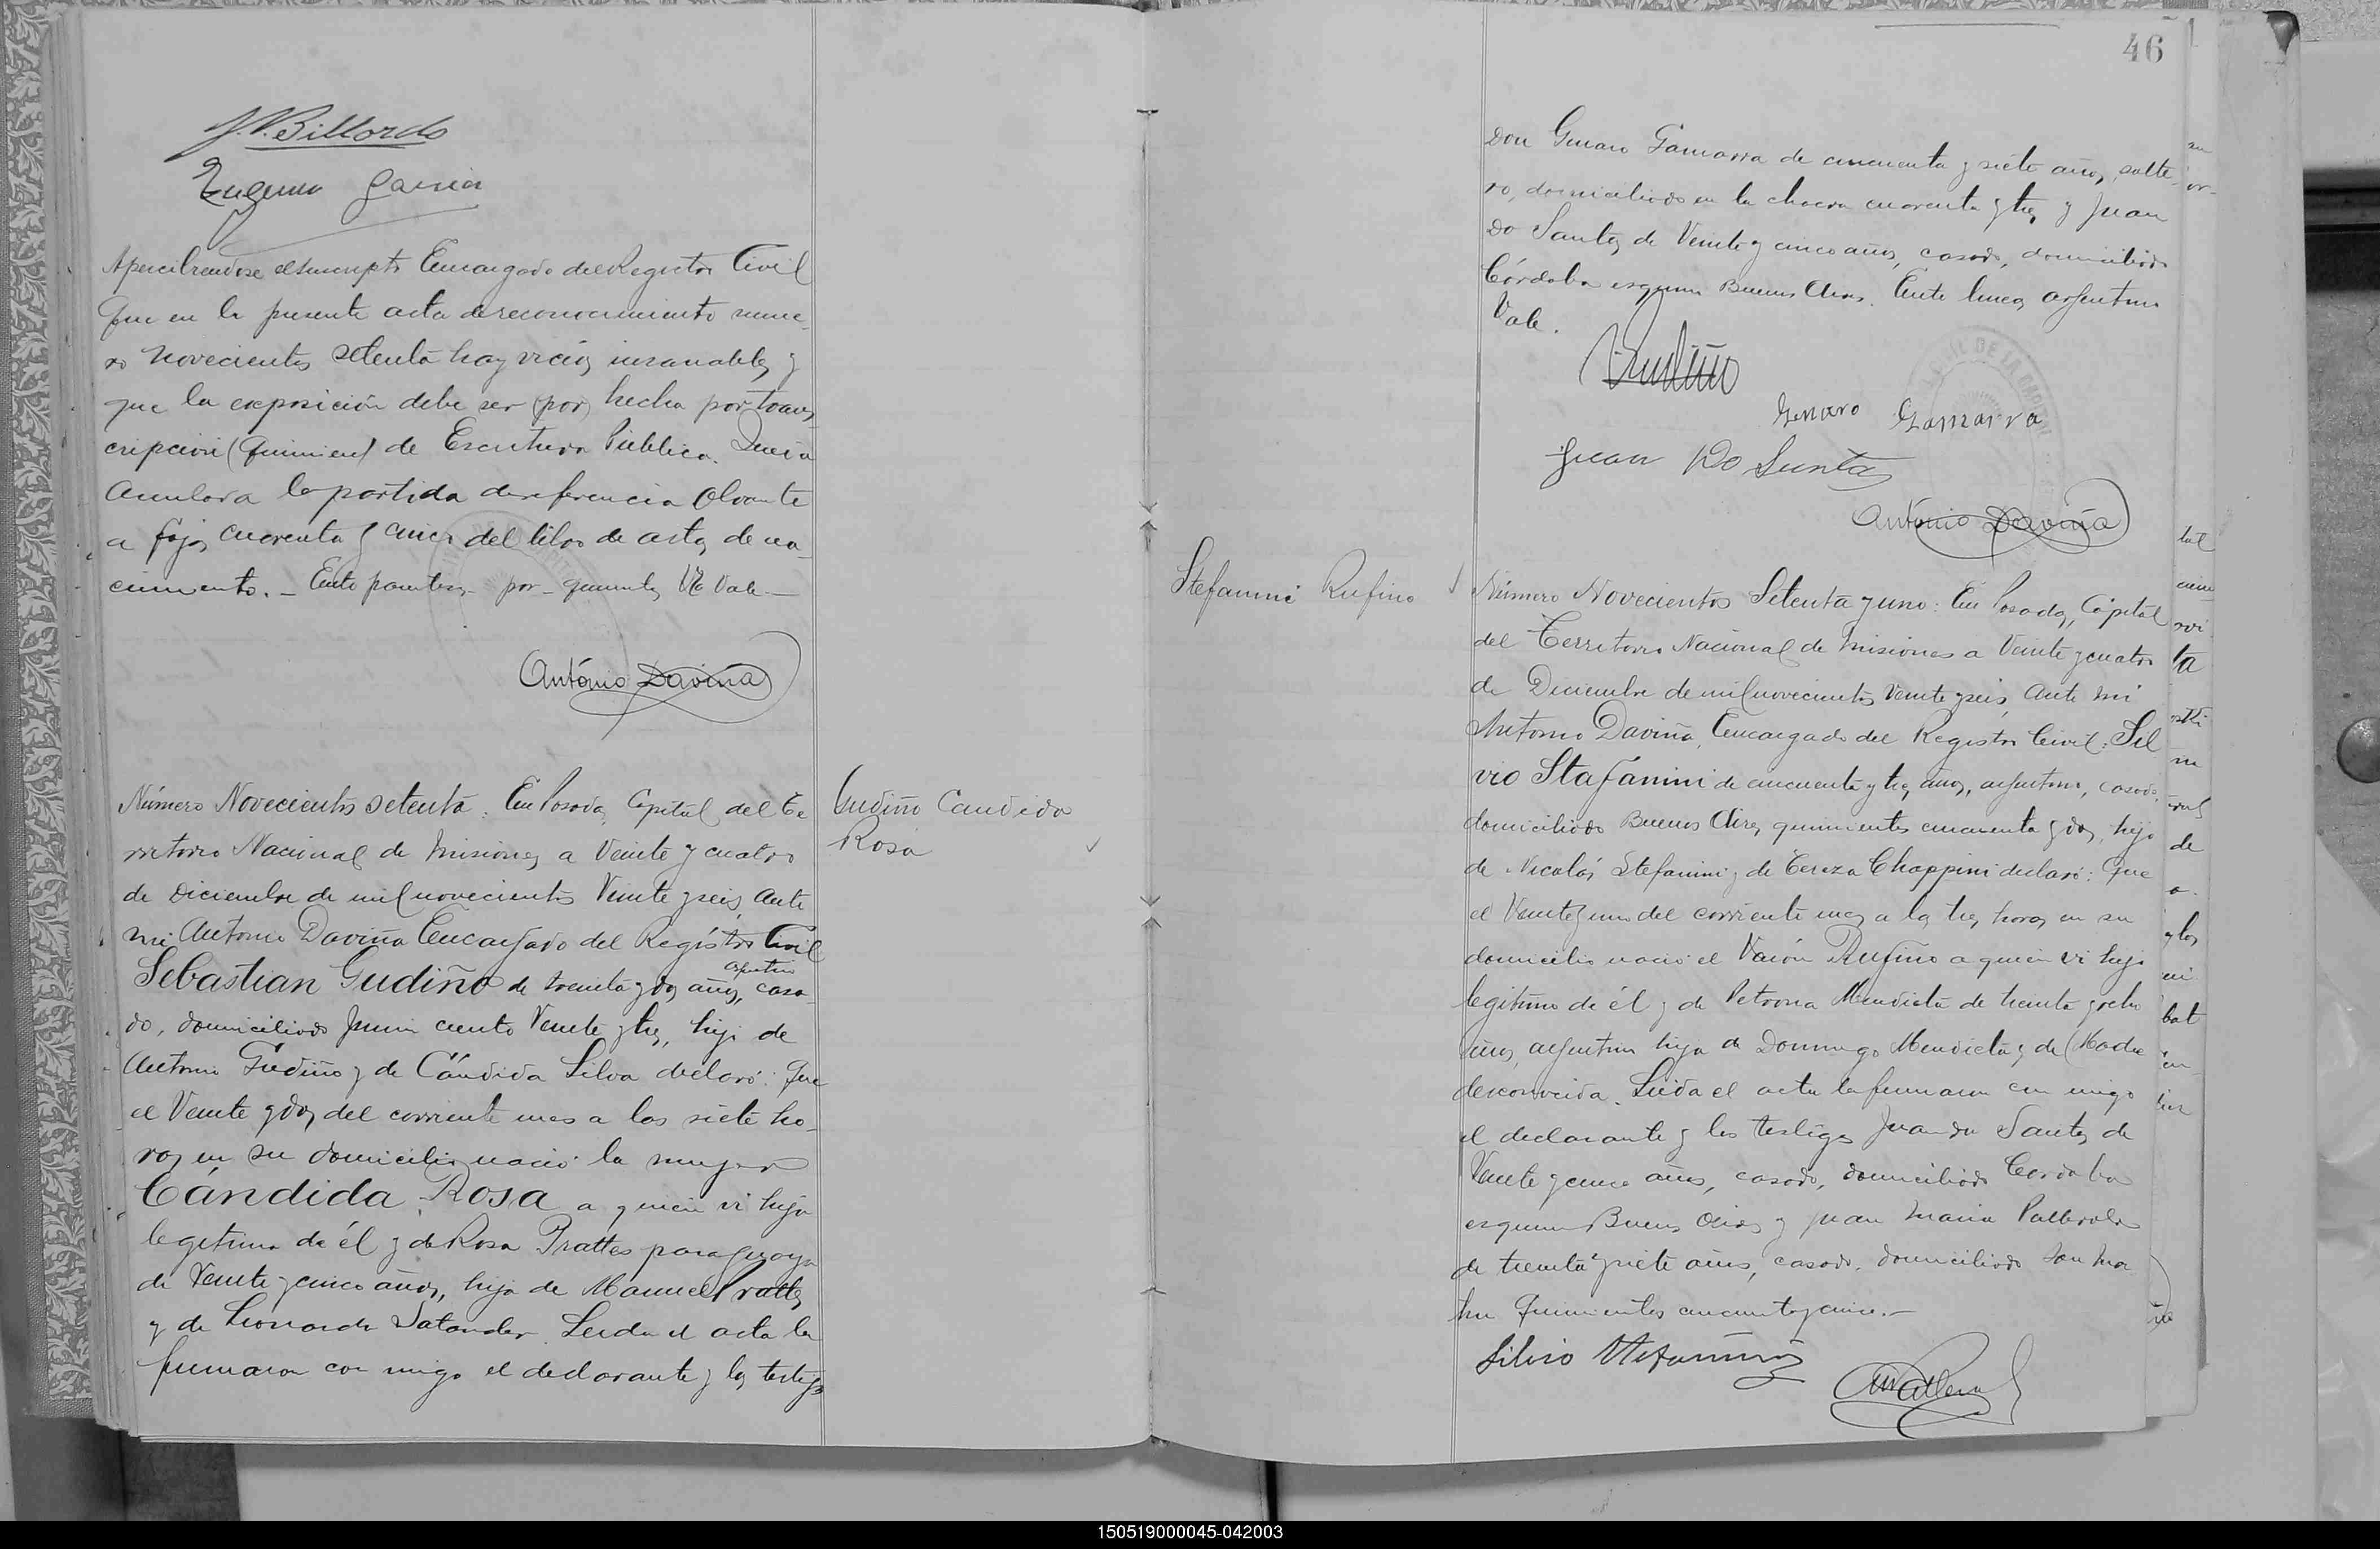 J. V. Billordo
Eugenio Garcia
Apercibiendose el suscripto Encargado del Registro Civil
que en la presente acta de reconocimiento nume-
ro novecientos setenta hay vicios insanables y
que la exposición debe ser (por) hecha por trans
cripción (quinientos) de Escritura Pública. Queda
anulada la partida de referencia obrante
a fojas cuarenta y cinco del libro de actas de na-
cimiento. — Entre parentesis — por — No Vale —
Antonio Daviña
Número Novecientos setenta: En Posadas, Capital del Te
rritorio Nacional de Misiones a Veinte y cuatro
de Diciembre de mil novecientos Veinte y seis, Ante
mi Antonio Daviña Encargado del Registro Civil
argentino
Sebastian Gudiño de treinta y dos años, casa-
do, domiciliado Junin ciento Veinte y tres, hijo de
Antonio Gudiño y de Cándida Silva declaró: Que
el Veinte y dos del corriente mes a las siete ho-
ras en su domicilio nació la mujer
Cándida Rosa a quien vi hija
legitima de él y de Rosa Prattes paraguaya
de Veinte y cinco años, hija de Manuel Prattes
y de Leonarda Satander. Leida el acta la
firmaron con migo el declarante y los testigos
Gudiño Candida
Rosa
46
Don Genaro Gamarra de cincuenta y siete años, solte-
ro, domiciliado en la chacra cuarenta y tres y Juan
do Santos de Veinte y cinco años, casado, domiciliado
Córdoba esquina Buenos Aires. Entre lineas argentino
Vale.
Gudiño
Genaro Gamarra
Juan Do Santos
Antonio Daviña
Stefanini Rufino
Número Novecientos Setenta y uno: En Posadas, Capital
del Territorio Nacional de Misiones a Veinte y cuatro
de Diciembre de mil novecientos Veinte y seis, Ante mi
Antonio Daviña, Encargado del Registro Civil: Sil
vio Stafanini de cincuenta y tres años, argentino, casado,
domiciliado Buenos Aires quinientos cincuenta y dos, hijo
de Nicolás Stefanini y de Tereza Chappini declaró: Que
el Veinte y uno del corriente mes a las tres horas en su
domicilio nació el Varón Rufino a quien vi hijo
legitimo de él y de Petrona Mendieta de treinta y ocho
años, argentina hija de Domingo Mendieta y de (Madre
desconocida. Leida el acta la firmaron con migo
el declarante y los testigos Juan do Santos de
Veinte y cinco años, casado, domiciliado Cordoba
esquina Buenos Aires y Juan Maria
de treinta y siete años, casado, domiciliado San Mar
tin quinientos cincuenta y cinco.—
Silvio Stefanini
150519000045-042003